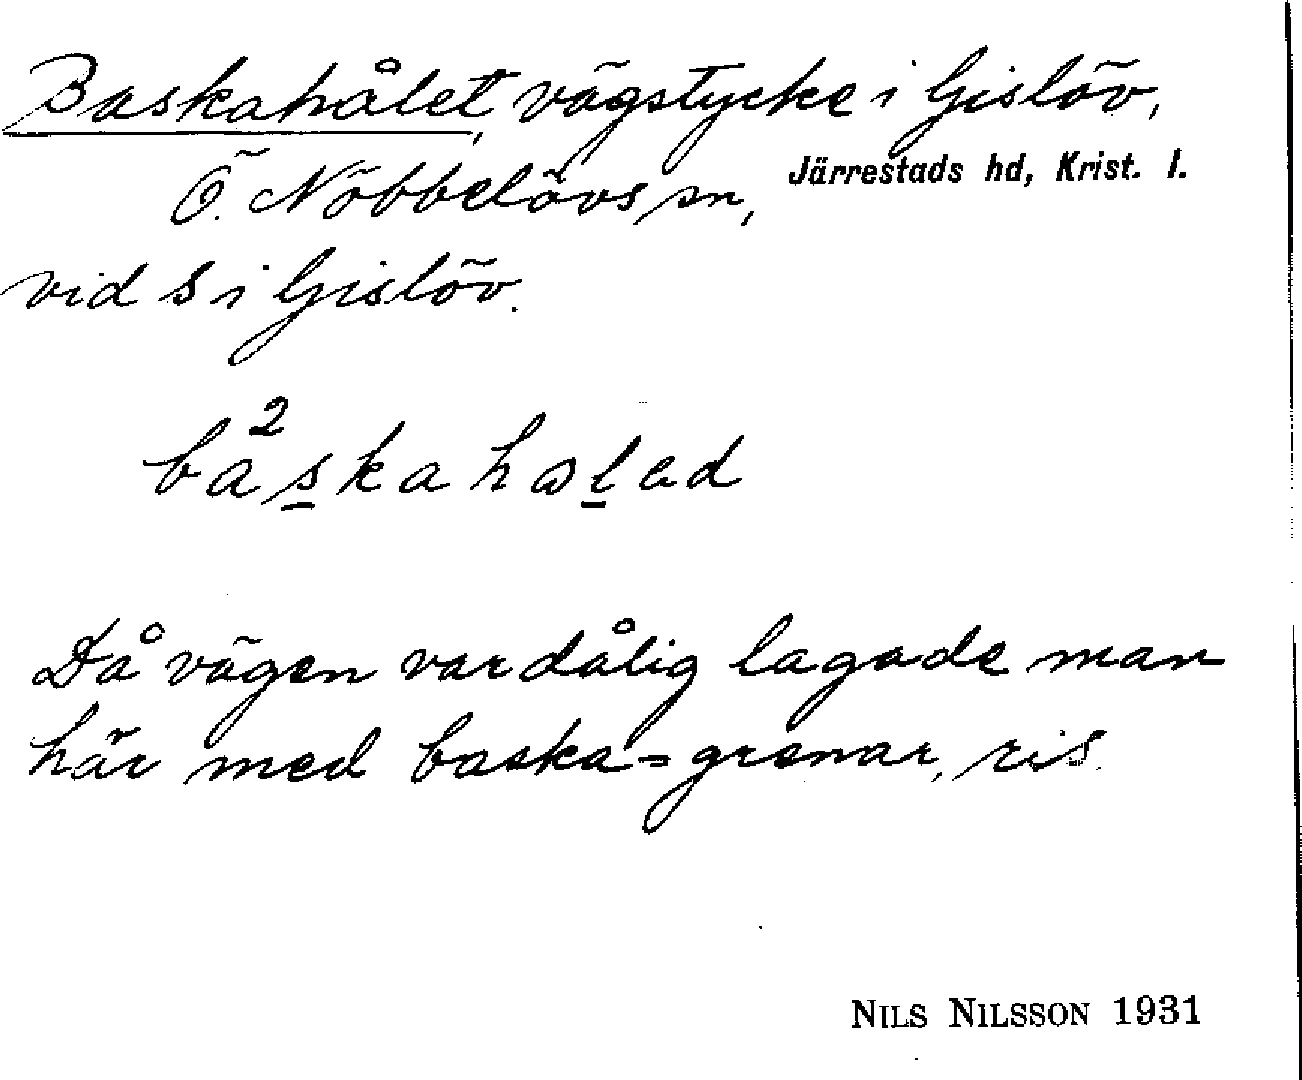 Baskahålet, vägstycke i Gislöv,
Ö. Nöbbelövs sn, Järrestads hd, Krist. l.
vid S i Gislöv.
2
baskahalad
Då vägen var dålig lagade man
här med baska=grenar, ris.
NILS NILSSON 1931